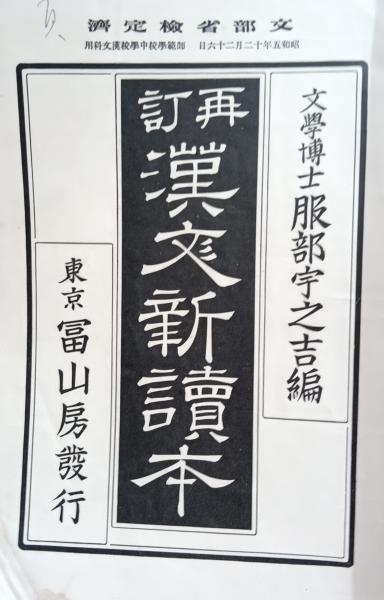 文部省檢定濟
昭和五年十二月二十六日 師範學校中學校漢文科用
文學博士 服部宇之吉編
再訂
漢文新讀本
東京 冨山房發行